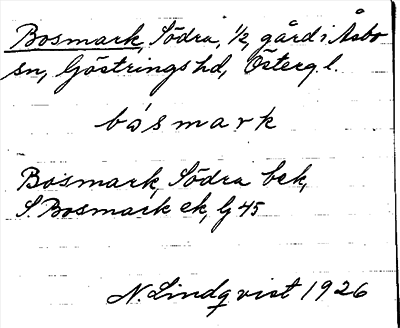 Bosmark, Södra, 1/2, gård i Åsbo
sn, Göstrings hd, Österg. l.
bo̍smark
Bosmark, Södra bek,
S. Bosmark ek, Lg 45
N. Lindqvist 1926